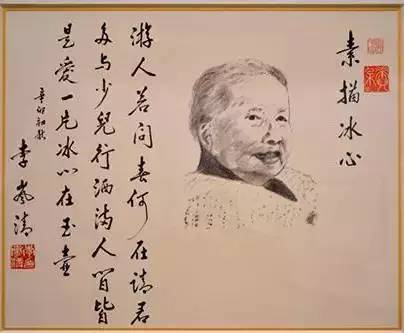 素描冰心
游人若问春何在请君
多与少兒行洒满人间皆
是愛一片冰心在玉壶
辛卯初秋
李岚清